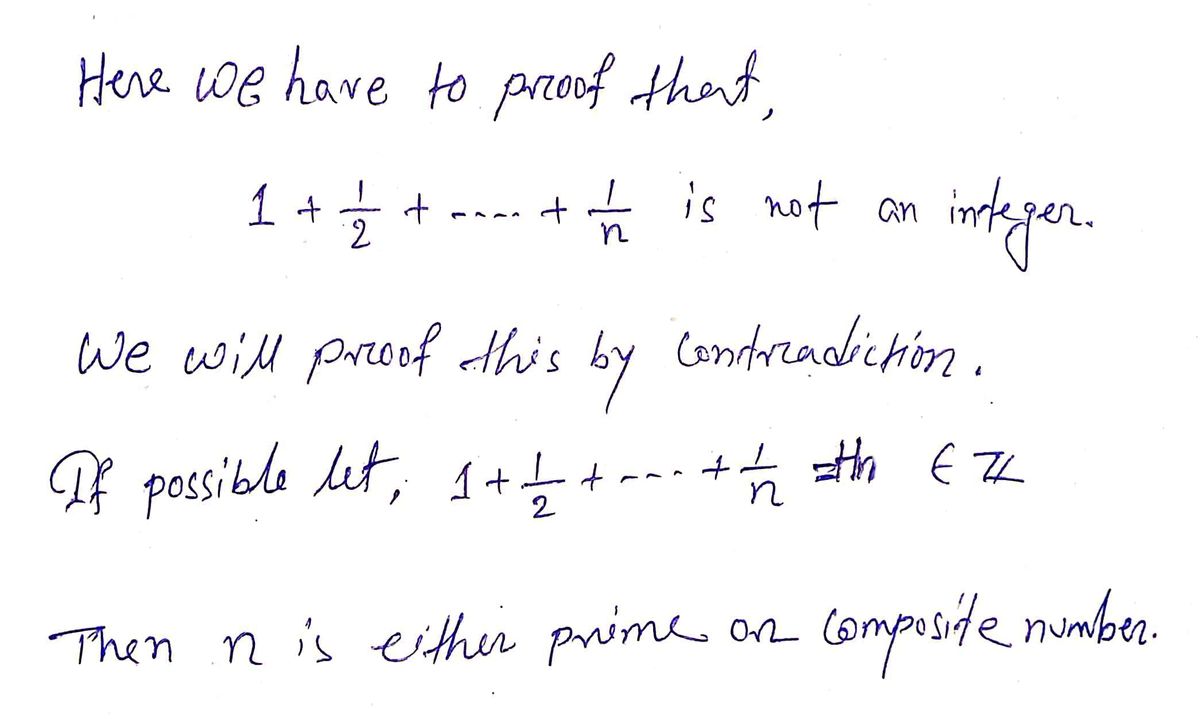 Here we have to proof that,
1 + 1/2 + ..... + 1/n is not an integer.
We will proof this by contradiction.
If possible let, 1 + 1/2 + ---- + 1/n ∈ ℤ
Then n is either prime or composite number.